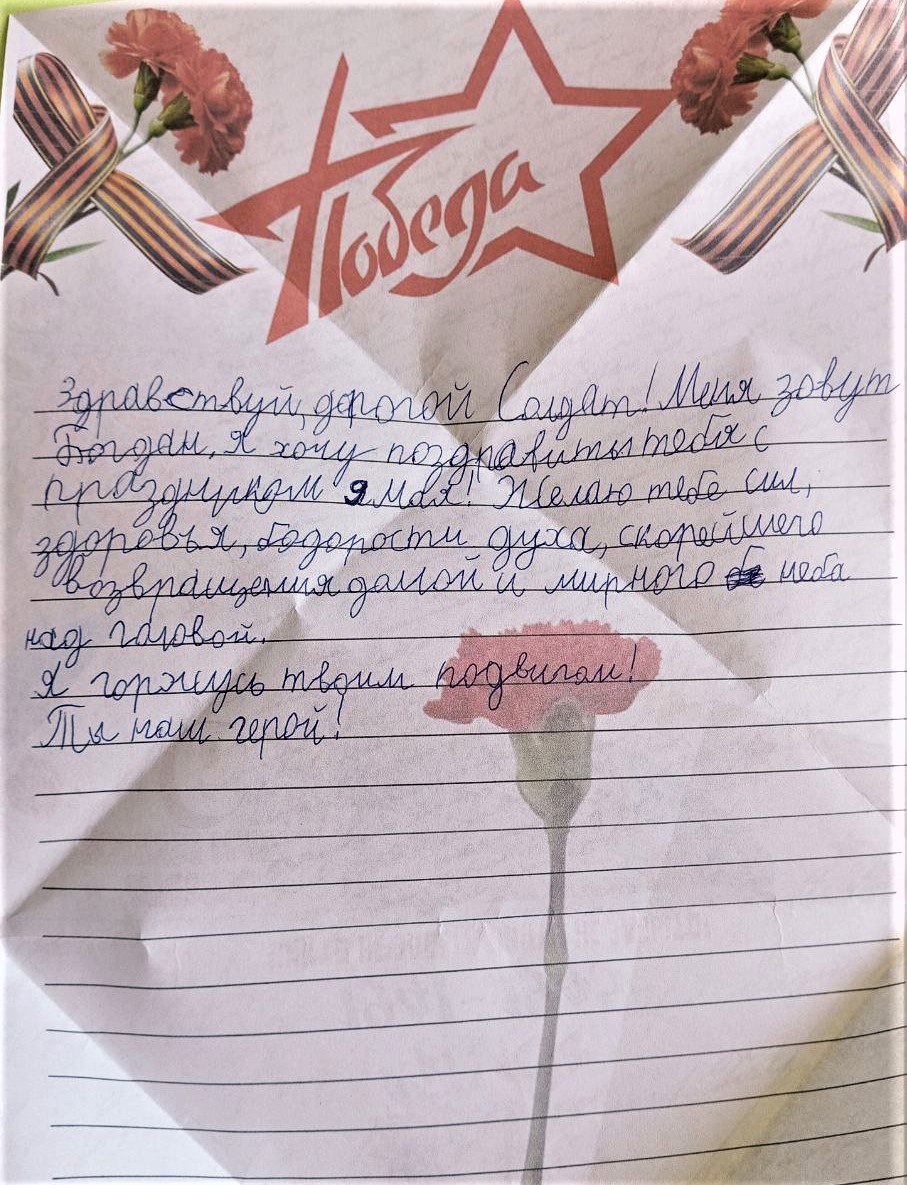 Победа
Здравствуй, дорогой Солдат! Меня зовут
Богдан, я хочу поздравить тебя с
праздником 9 мая! Желаю тебе сил,
здоровья, бодрости духа, скорейшего
возвращения домой и мирного неба
над головой.
Я горжусь твоим подвигом!
Ты наш герой!